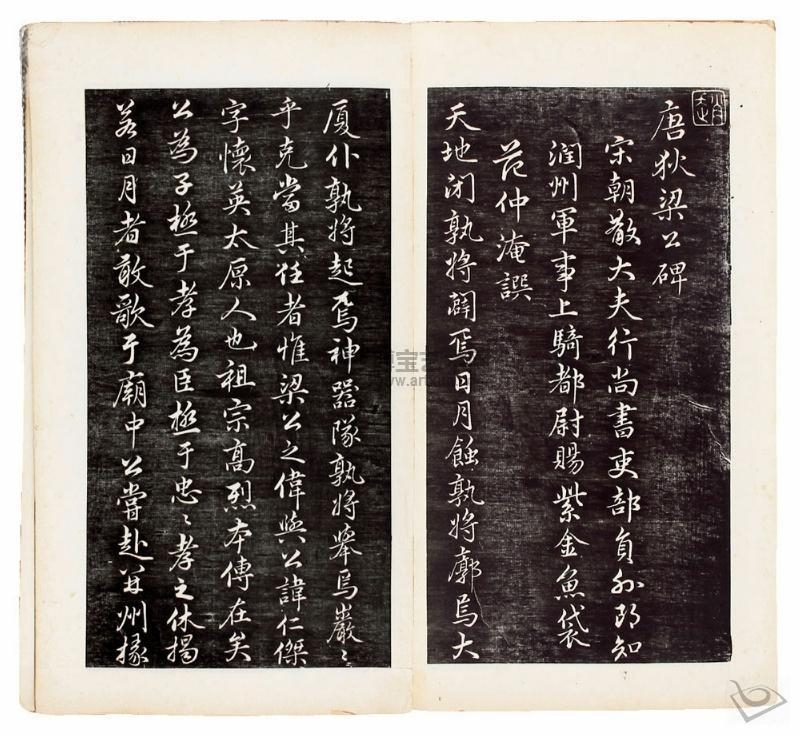 唐狄梁公碑
宋朝散大夫行尚書吏部員外郎知
潤州軍事上騎都尉賜紫金魚袋
范仲淹譔
天地閉孰將闢焉日月蝕孰將廓焉大
厦仆孰將起焉神器墜孰將舉焉巖〻
乎克當其任者惟梁公之偉與公諱仁傑
字懷英太原人也祖宗高烈本傳在矣
公為子極于孝為臣極于忠〻孝之休揭
若日月者敢歌于廟中公嘗赴并州掾